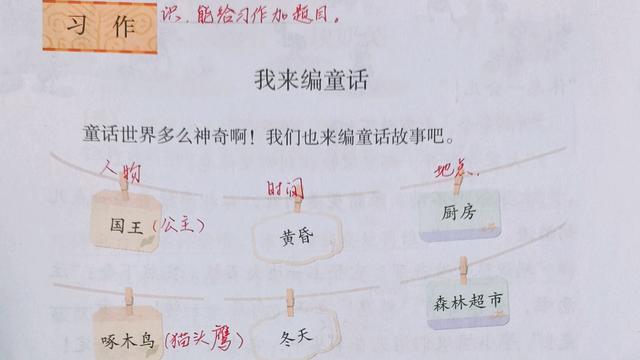 识,能给习作加题目。
习 作
我来编童话
童话世界多么神奇啊!我们也来编童话故事吧。
人物 时间 地点.
国王(公主) 黄昏 厨房
啄木鸟(猫头鹰) 冬天 森林超市